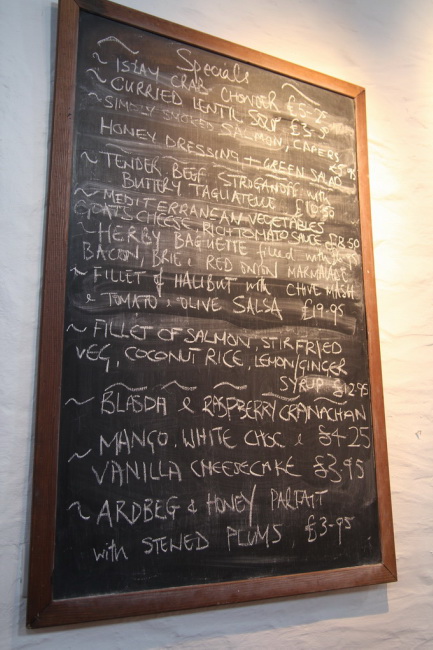 Specials
~ ISLAY CRAB CHOWDER
~ CURRIED LENTIL SOUP £3.50
~ SIMPLY SMOKED SALMON, CAPERS
HONEY DRESSING + GREEN SALAD
~ TENDER BEEF STROGANOFF with
BUTTERY TAGLIATELLE £10.50
~ MEDITERRANEAN VEGETABLES
GOATS CHEESE, RICH TOMATO SAUCE £8.50
~ HERBY BAGUETTE filled with
BACON, BRIE, RED ONION MARMALADE
~ FILLET of HALIBUT with CHIVE MASH
& TOMATO, OLIVE SALSA £19.95
~ FILLET OF SALMON, STIR FRIED
VEG, COCONUT RICE, LEMON/GINGER
SYRUP £12.95
~ BLASDA & RASPBERRY CRANACHAN
£4-25
~ MANGO, WHITE CHOC &
VANILLA CHEESECAKE £3.95
~ ARDBEG & HONEY PARFAIT
with STEWED PLUMS, £3-95